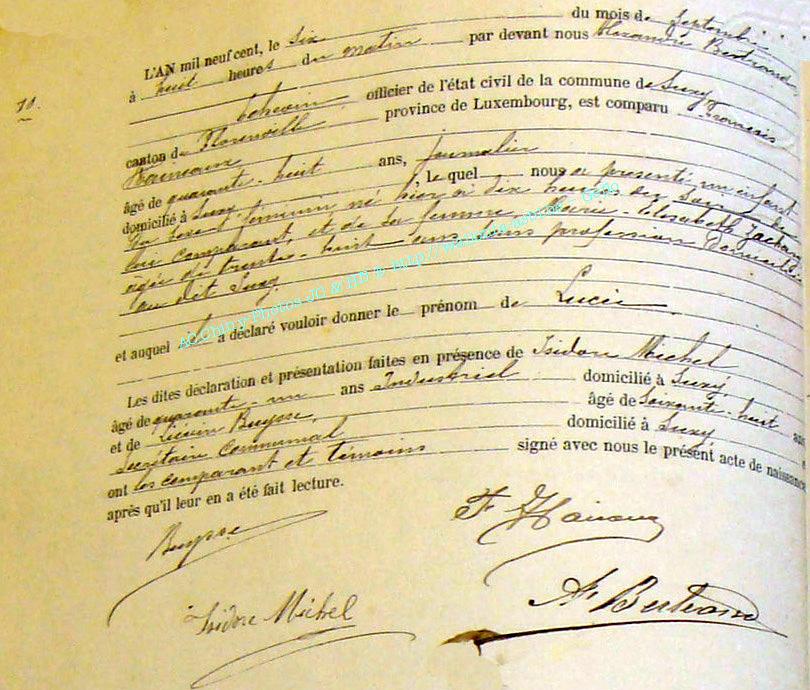 L'AN mil neuf cent, le Six du mois de Septembre
à huit heures du matin par devant nous Alexandre Bertrand
10.
officier de l'état civil de la commune de Suxy
canton de Florenville province de Luxembourg, est comparu François
Hainaux
âgé de quarante-huit ans, journalier
domicilié à Suxy, le quel nous a présenté un enfant
du sexe féminin né hier à dix heures du soir, de
lui comparant, et de sa femme Marie-Elisabeth
agée de trente-huit ans, sans profession Domiciliée
au dit Suxy.
et auquel il a déclaré vouloir donner le prénom de Lucie
Les dites déclaration et présentation faites en présence de Isidore Michel
âgé de quarante-un ans Industriel domicilié à Suxy
et de Liévin Buysse, âgé de Soixante-huit ans
Secrétaire Communal domicilié à Suxy
ont les comparant et témoins signé avec nous le présent acte de naissance
après qu'il leur en a été fait lecture.
Buysse F Hainaux
Isidore Michel A Bertrand
AC Chiny Photos JC & HB & http://